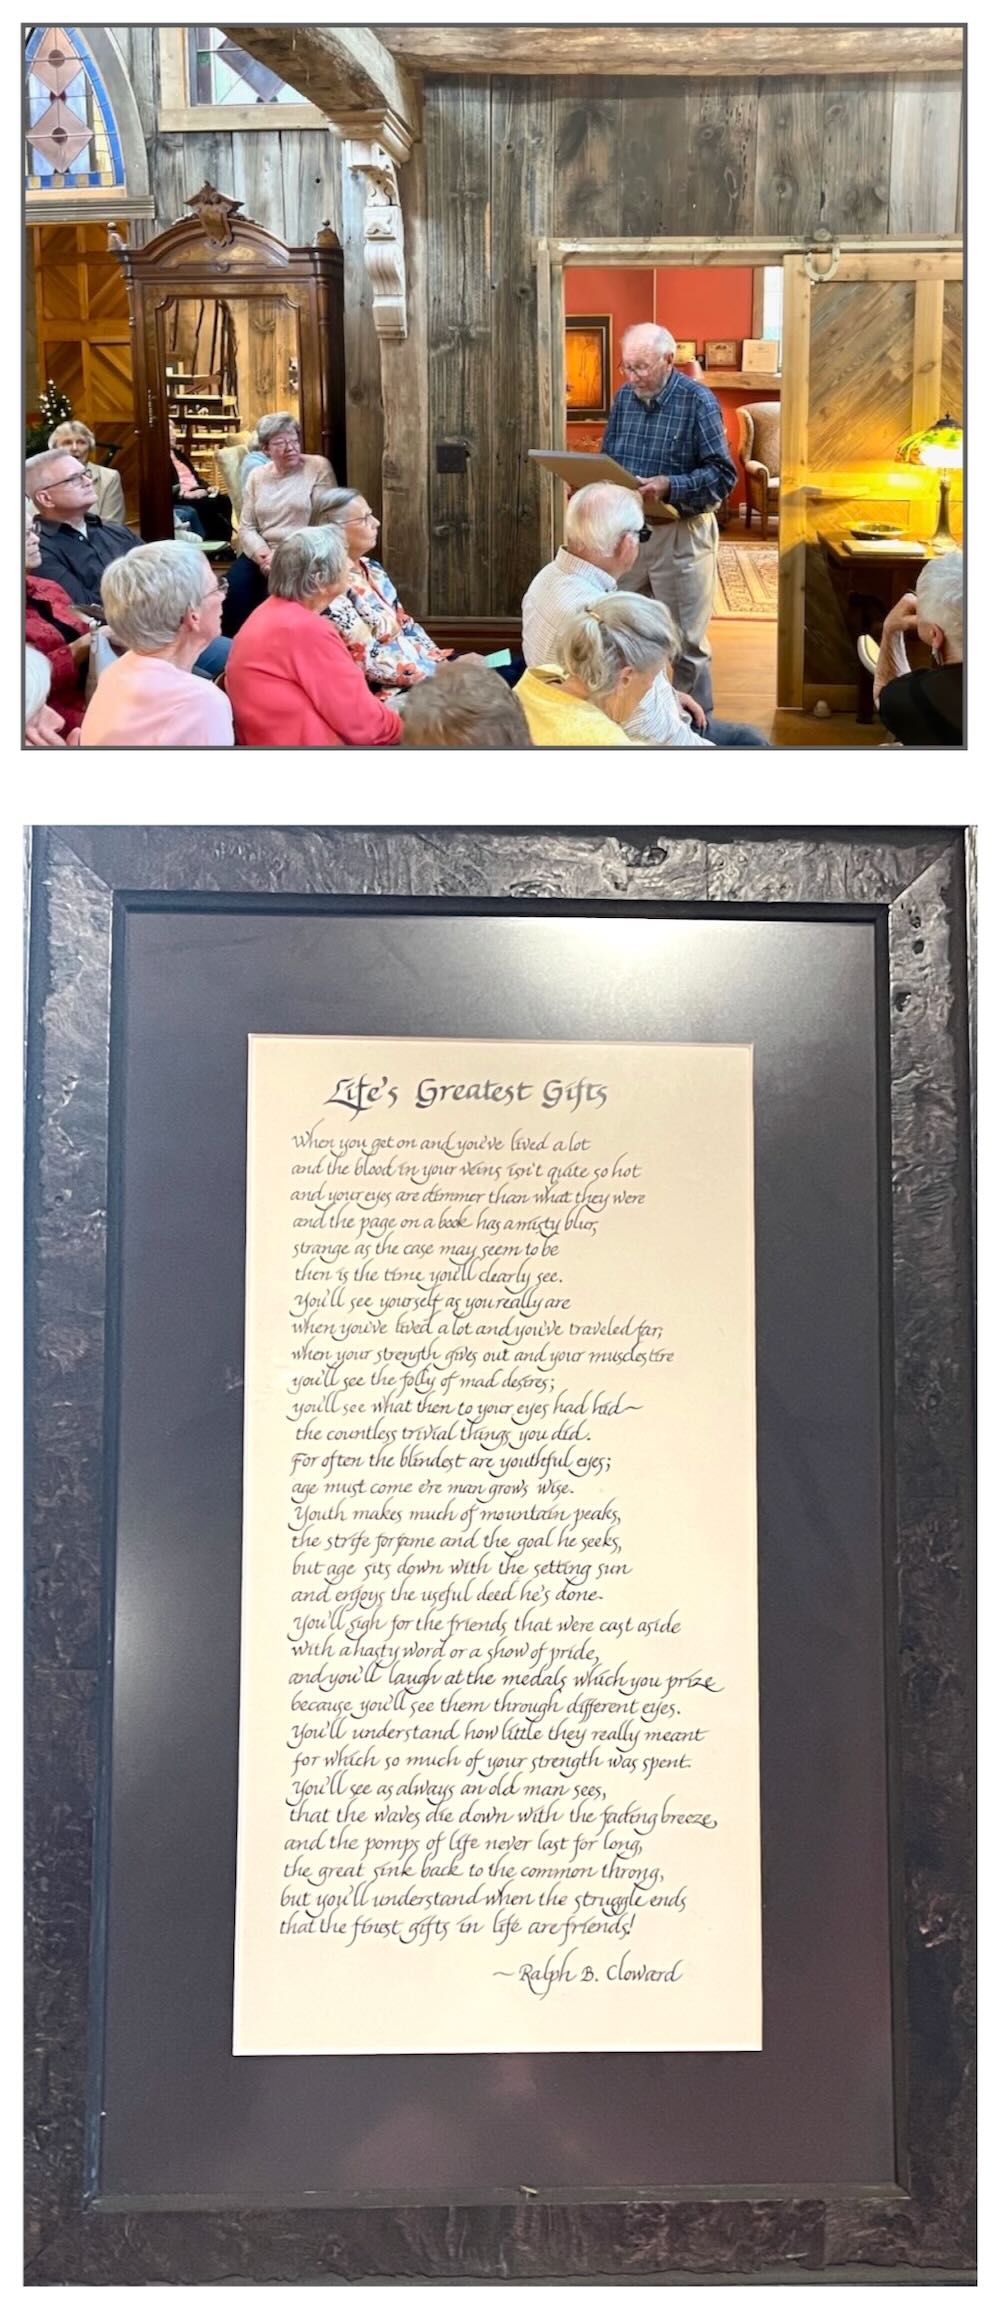 Life's Greatest Gifts
When you get on and you've lived a lot
and the blood in your veins isn't quite so hot
and your eyes are dimmer than what they were
and the page on a book has a misty blur,
strange as the case may seem to be
then is the time you'll clearly see.
You'll see yourself as you really are
when you've lived a lot and you've traveled far;
when your strength gives out and your muscles tire
you'll see the folly of mad desires;
you'll see what then to your eyes had hid~
the countless trivial things you did.
For often the blindest are youthful eyes;
age must come e're man grows wise.
Youth makes much of mountain peaks,
the strife for fame and the goal he seeks,
but age sits down with the setting sun
and enjoys the useful deed he's done.
You'll sigh for the friends that were cast aside
with a hasty word or a show of pride,
and you'll laugh at the medals which you prize
because you'll see them through different eyes.
You'll understand how little they really meant
for which so much of your strength was spent.
You'll see as always an old man sees,
that the waves die down with the fading breeze,
and the pomps of life never last for long,
the great sink back to the common throng,
but you'll understand when the struggle ends
that the finest gifts in life are friends!
~ Ralph B. Cloward